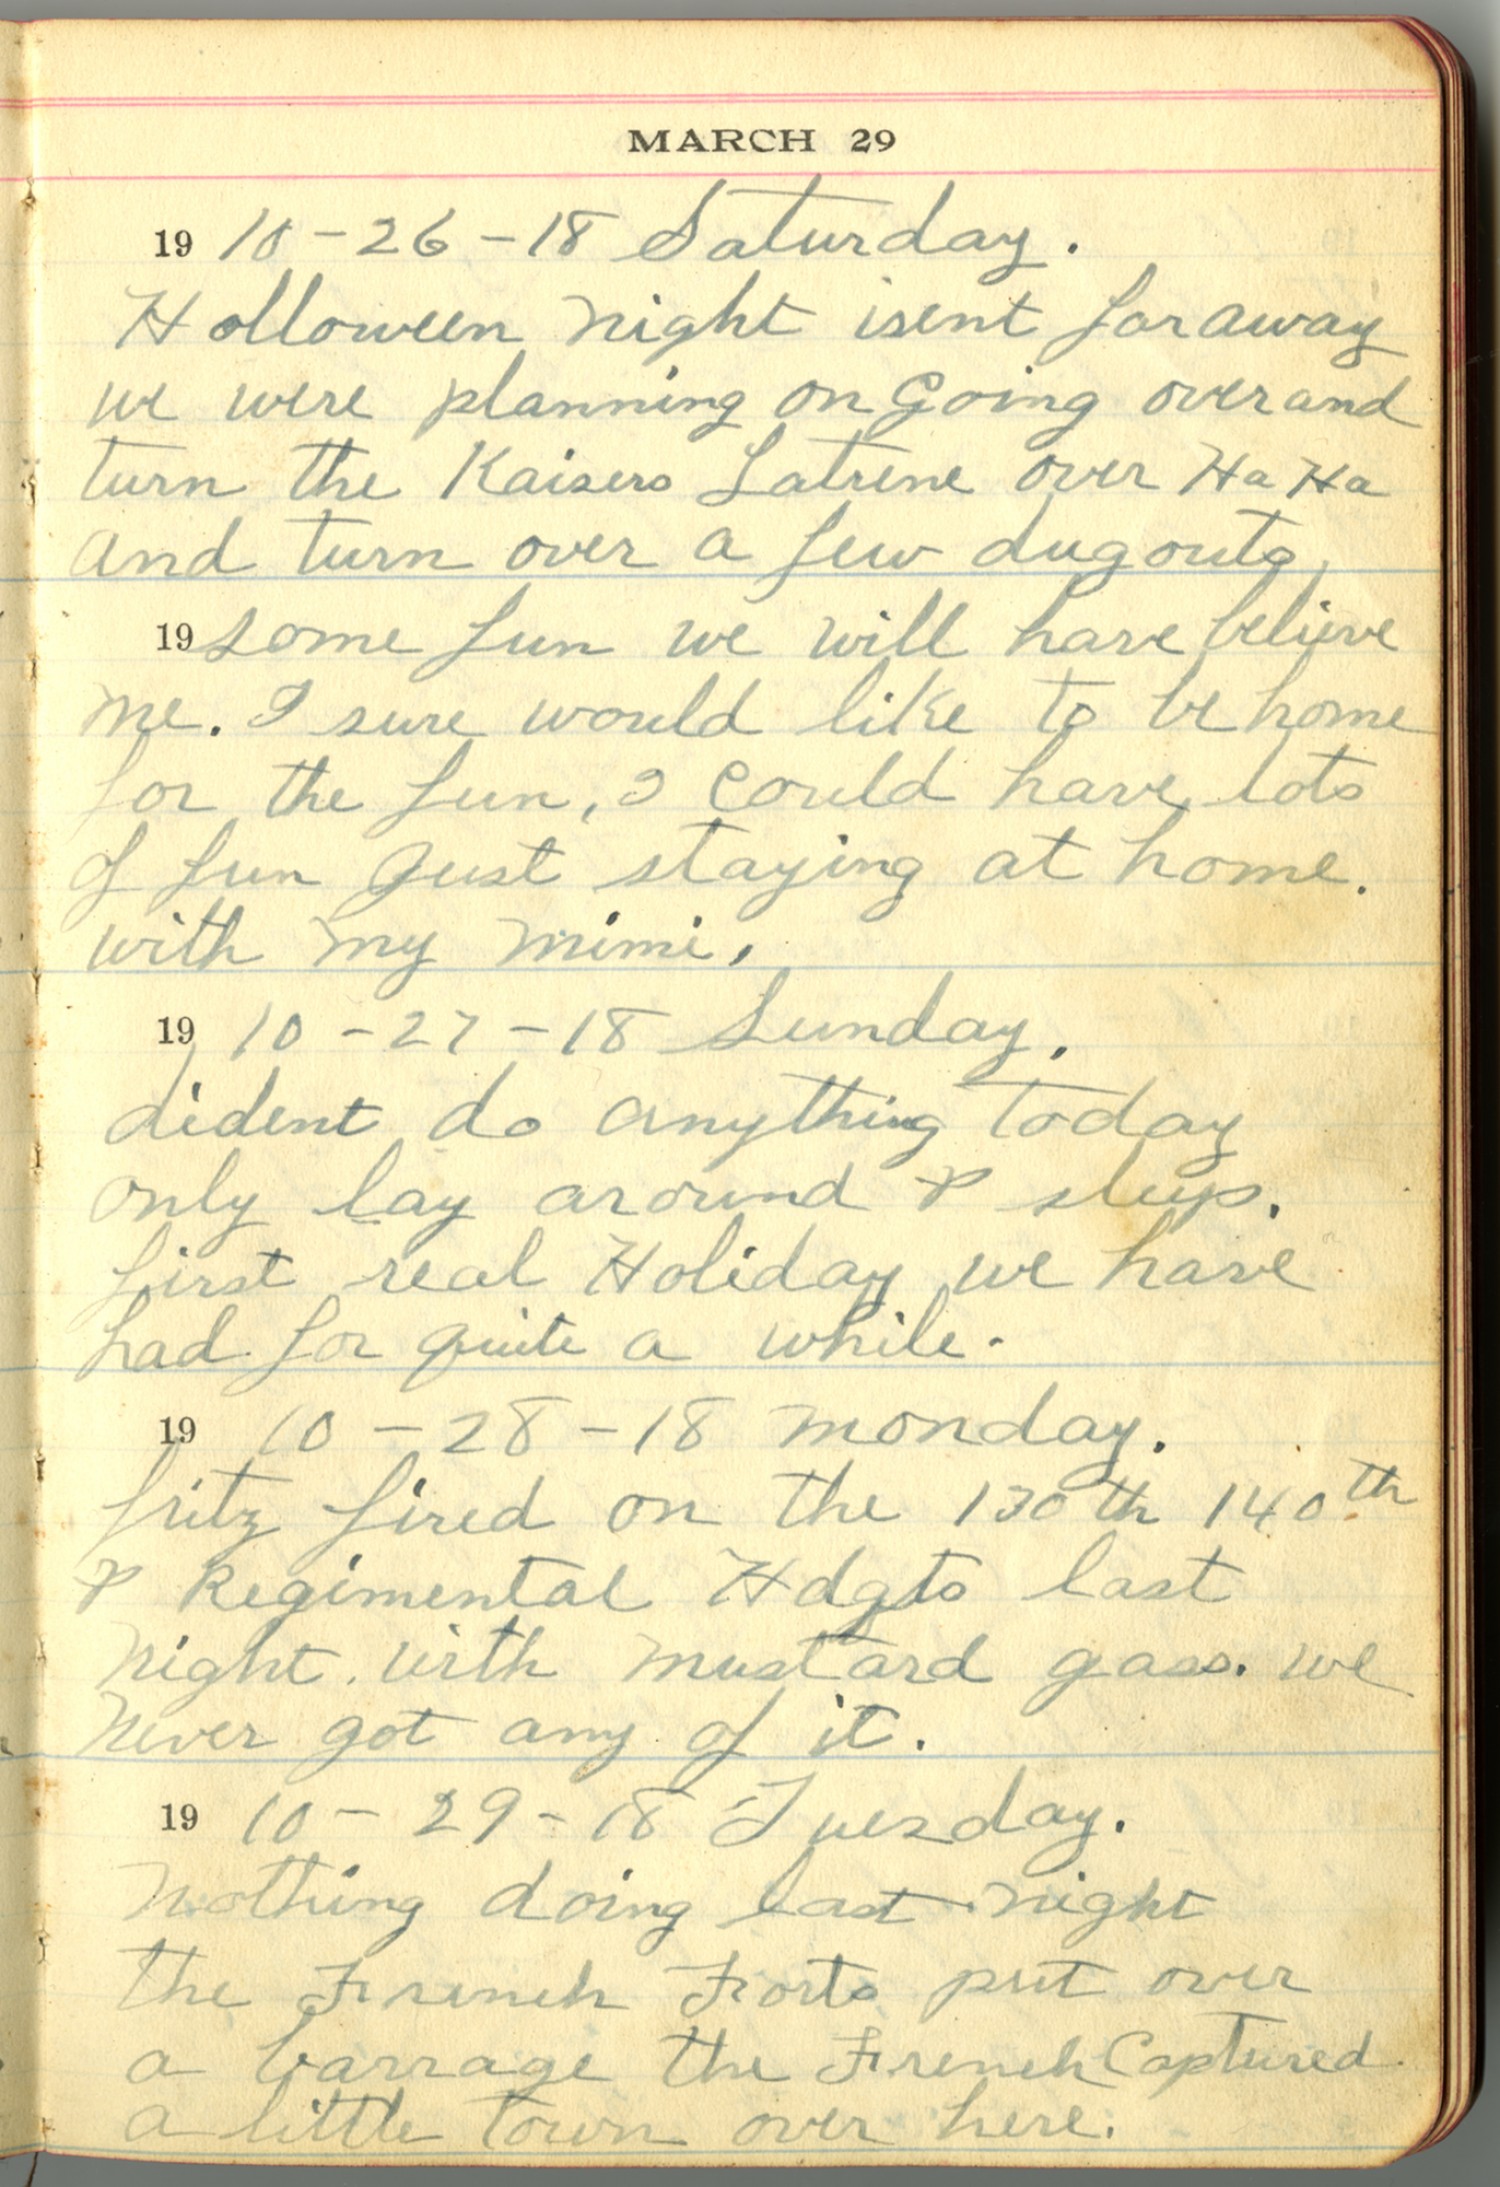 MARCH 29
19 10-26-18 Saturday.
Holloween night isent far away
we were planning on Going over and
turn the Kaisers Latrene over Ha Ha
and turn over a few dugouts,
19 some fun we will have believe
me. I sure would like to be home
for the fun, I Could have lots
of fun Just staying at home.
with my mimi.
19 10-27-18 Sunday.
dident do anything today
only lay around & sleep.
first real Holiday we have
had for quite a while.
19 10-28-18 monday.
fritz fired on the 130th 140th
& Regimental Hdqts last
night. with mustard gass. we
never got any of it.
19 10-29-18 Tuesday.
Nothing doing last night
the French Forts put over
a barrage the French Captured
a little town over here.